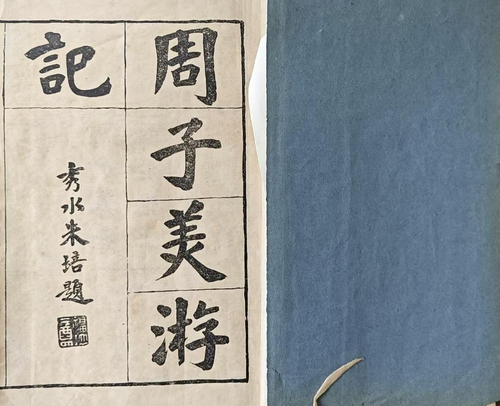 周子美游
記
秀水朱培題